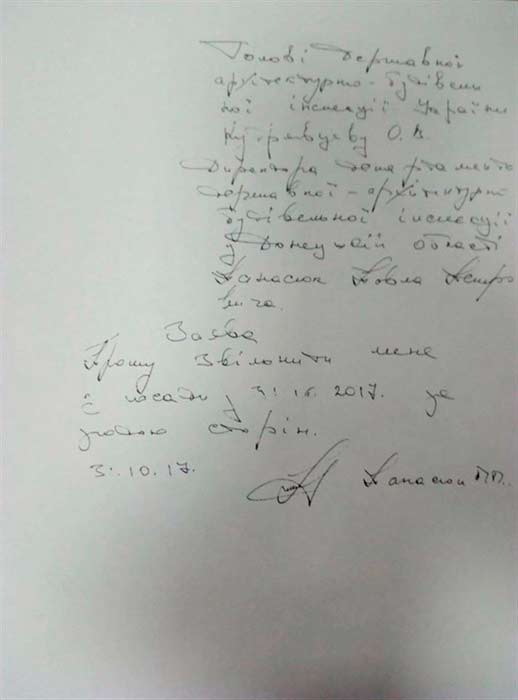 Голові Державної
архітектурно-будівель
ної інспекції України
Кудрявцеву О.В.
Директора департаменту
державної-архітектурно
будівельної інспекції
у Донецькій області
Панасюк Павла Петро
вича.
Заява
Прошу Звільнити мене
з посади з 31.10.2017. за
угодою сторін.
31.10.17.
Панасюк П.П.